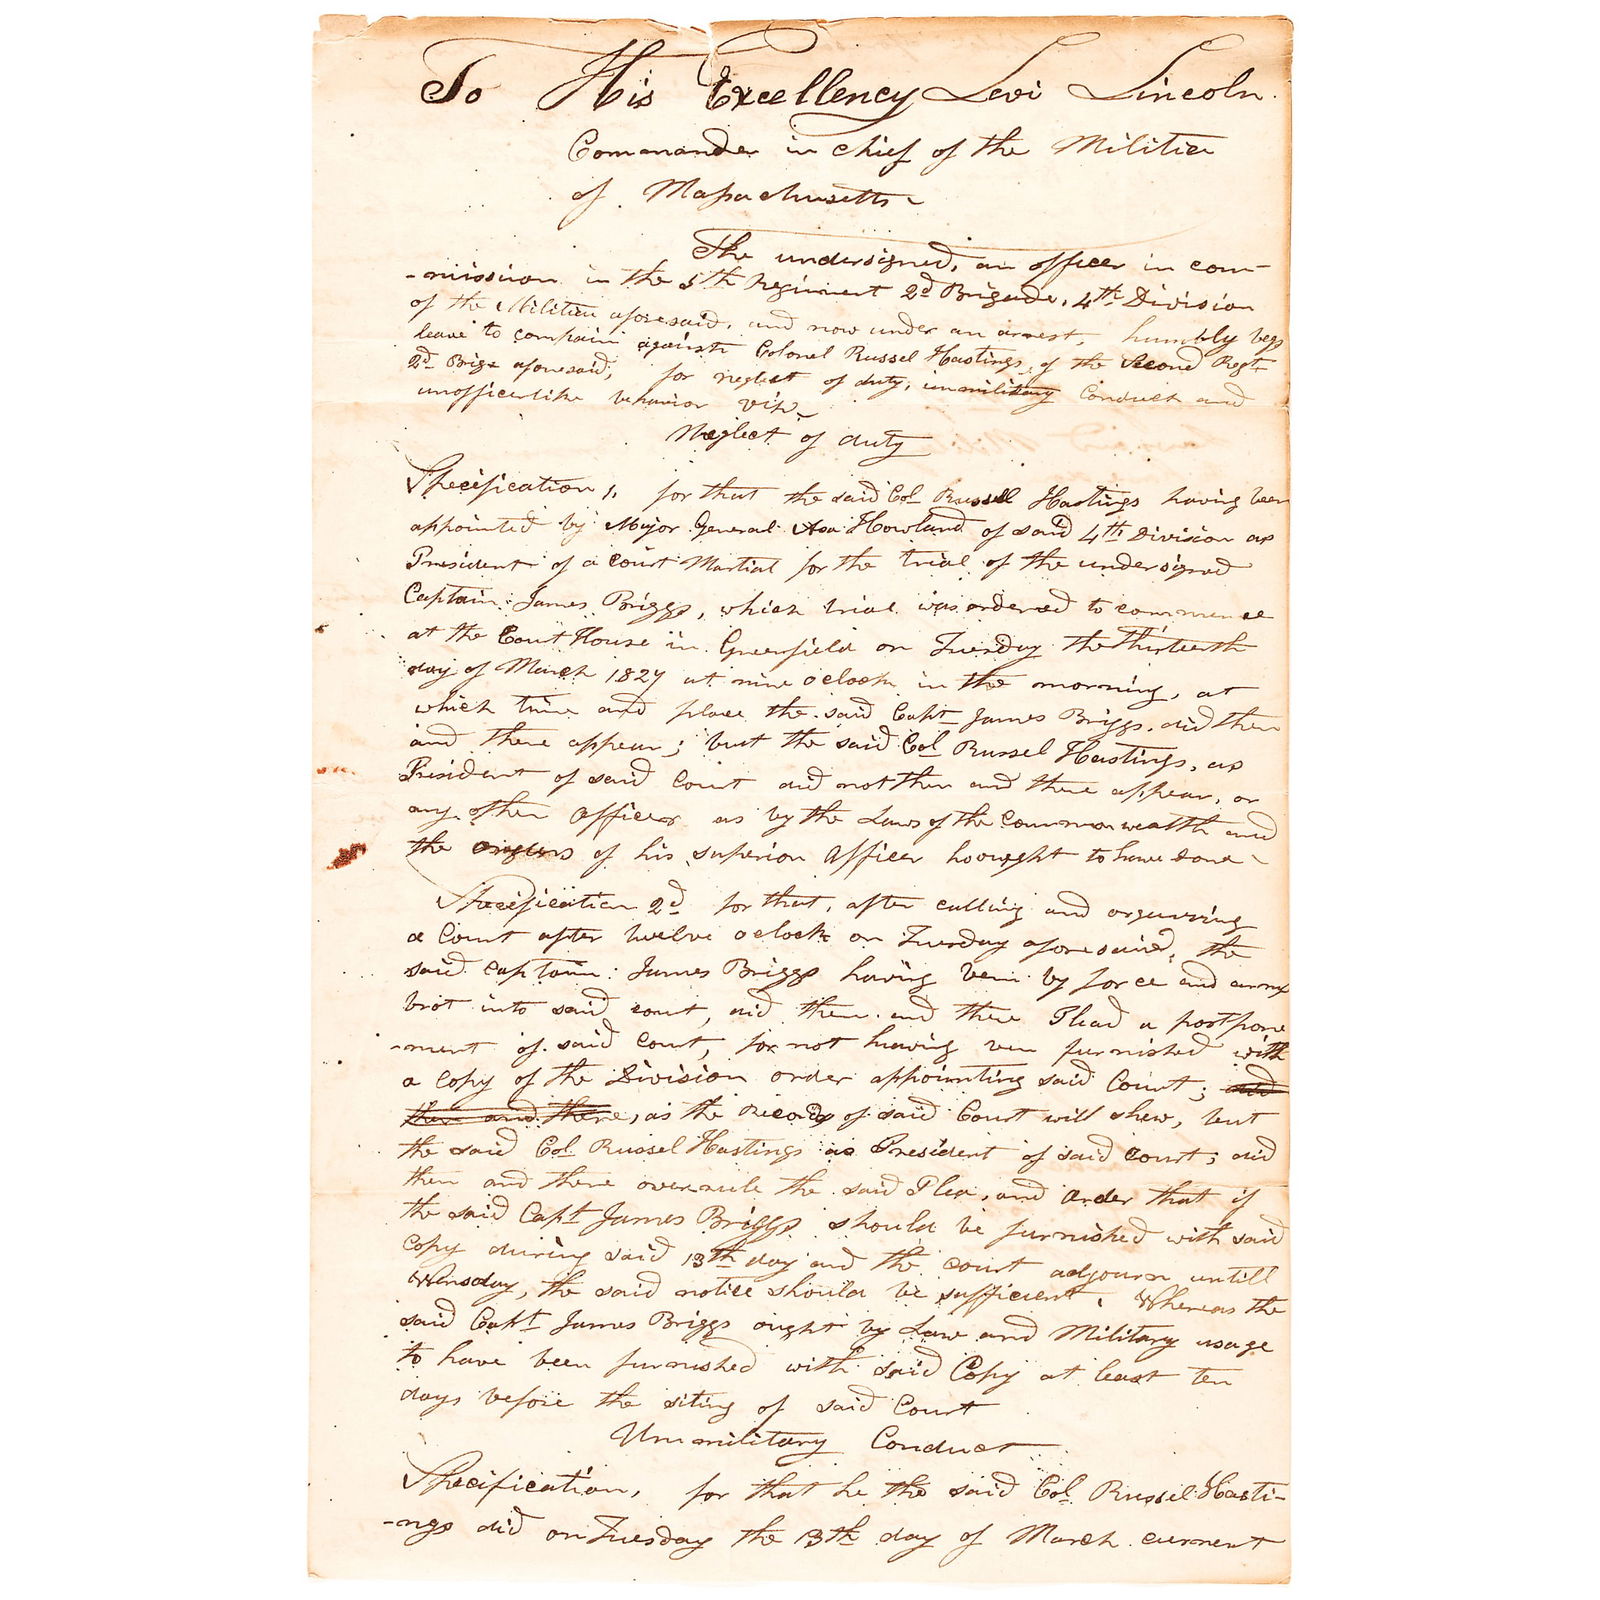 To His Excellency Levi Lincoln.
Commander in chief of the Militia
of Massachusetts
The undersigned, an officer in com-
-mission in the 5th Regiment 2d Brigade, 4th Division
of the Militia aforesaid, and now under an arrest, humbly begs
leave to complain against Colonel Russel Hastings, of the Second Regt
2d Brige aforesaid, for neglect of duty, unmilitary Conduct and
unofficerlike behavior viz.
Neglect of duty
Specification 1, for that the said Col Russell Hastings having been
appointed by Major General Asa Howland of said 4th Division as
President of a Court Martial for the trial of the undersigned
Captain James Briggs, which trial was ordered to commence
at the Court House in Greenfield on Tuesday the Thirteenth
day of March 1827 at nine oclock in the morning, at
which time and place the said Capt James Briggs did then
and there appear; but the said Col Russel Hastings, as
President of said Court did not then and there appear, or
any other Officer as by the Laws of the Commonwealth and
the orders of his superior Officer he ought to have done
Specification 2d for that, after calling and organising
a Court after twelve oclock on Tuesday aforesaid, the
said Captain James Briggs having been by force and arms
brot into said court, did then and there Plead a postpone
-ment of said Court, for not having been furnished with
a copy of the Division order appointing said Court; and
then and there, as the Records of said Court will shew, but
the said Col Russel Hastings as President of said Court, did
then and there overrule the said Plea, and Order that if
the said Capt James Briggs should be furnished with said
Copy during said 13th day and the Court adjourn untill
Wensday, the said notice should be sufficient. Whereas the
said Capt James Briggs ought by Law and Military usage
to have been furnished with said Copy at least ten
days before the siting of said Court
Unmilitary Conduct
Specification, for that he the said Col Russel Hasti-
-ngs did on Tuesday the 13th day of March current